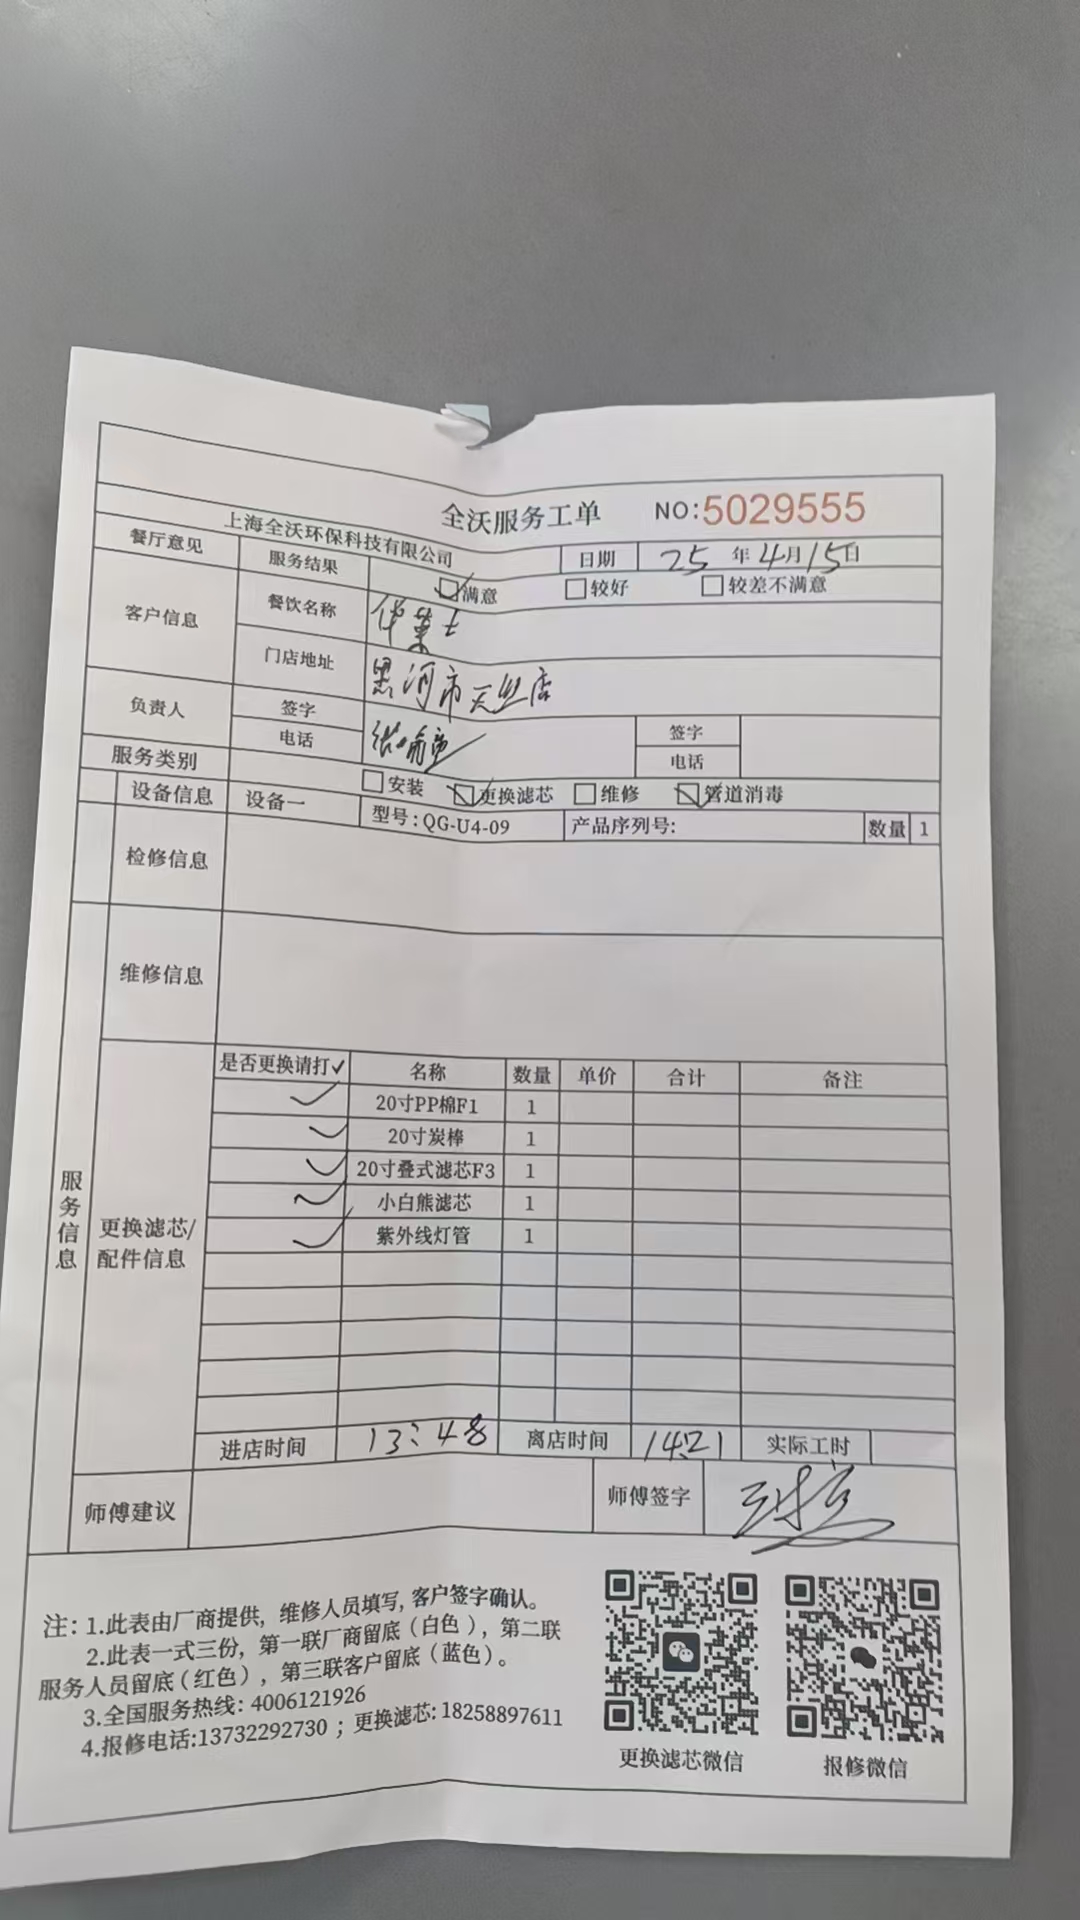 全沃服务工单 NO:5029555
上海全沃环保科技有限公司 日期 25年4月15日
餐厅意见 服务结果 满意 较好 较差不满意
客户信息 餐饮名称 华莱士
门店地址 黑河市天业店
负责人 签字 签字
电话 电话
服务类别 安装 更换滤芯 维修 管道消毒
设备信息 设备一 型号:QG-U4-09 产品序列号: 数量 1
检修信息
维修信息
服务信息
更换滤芯/配件信息
是否更换请打✓ 名称 数量 单价 合计 备注
✓ 20寸PP棉F1 1
✓ 20寸炭棒 1
✓ 20寸叠式滤芯F3 1
✓ 小白熊滤芯 1
✓ 紫外线灯管 1
进店时间 13:48 离店时间 14:21 实际工时
师傅建议 师傅签字
注: 1.此表由厂商提供, 维修人员填写, 客户签字确认。
2.此表一式三份, 第一联厂商留底(白色), 第二联
服务人员留底(红色), 第三联客户留底(蓝色)。
3.全国服务热线: 4006121926
4.报修电话:13732292730 ; 更换滤芯: 18258897611
更换滤芯微信 报修微信